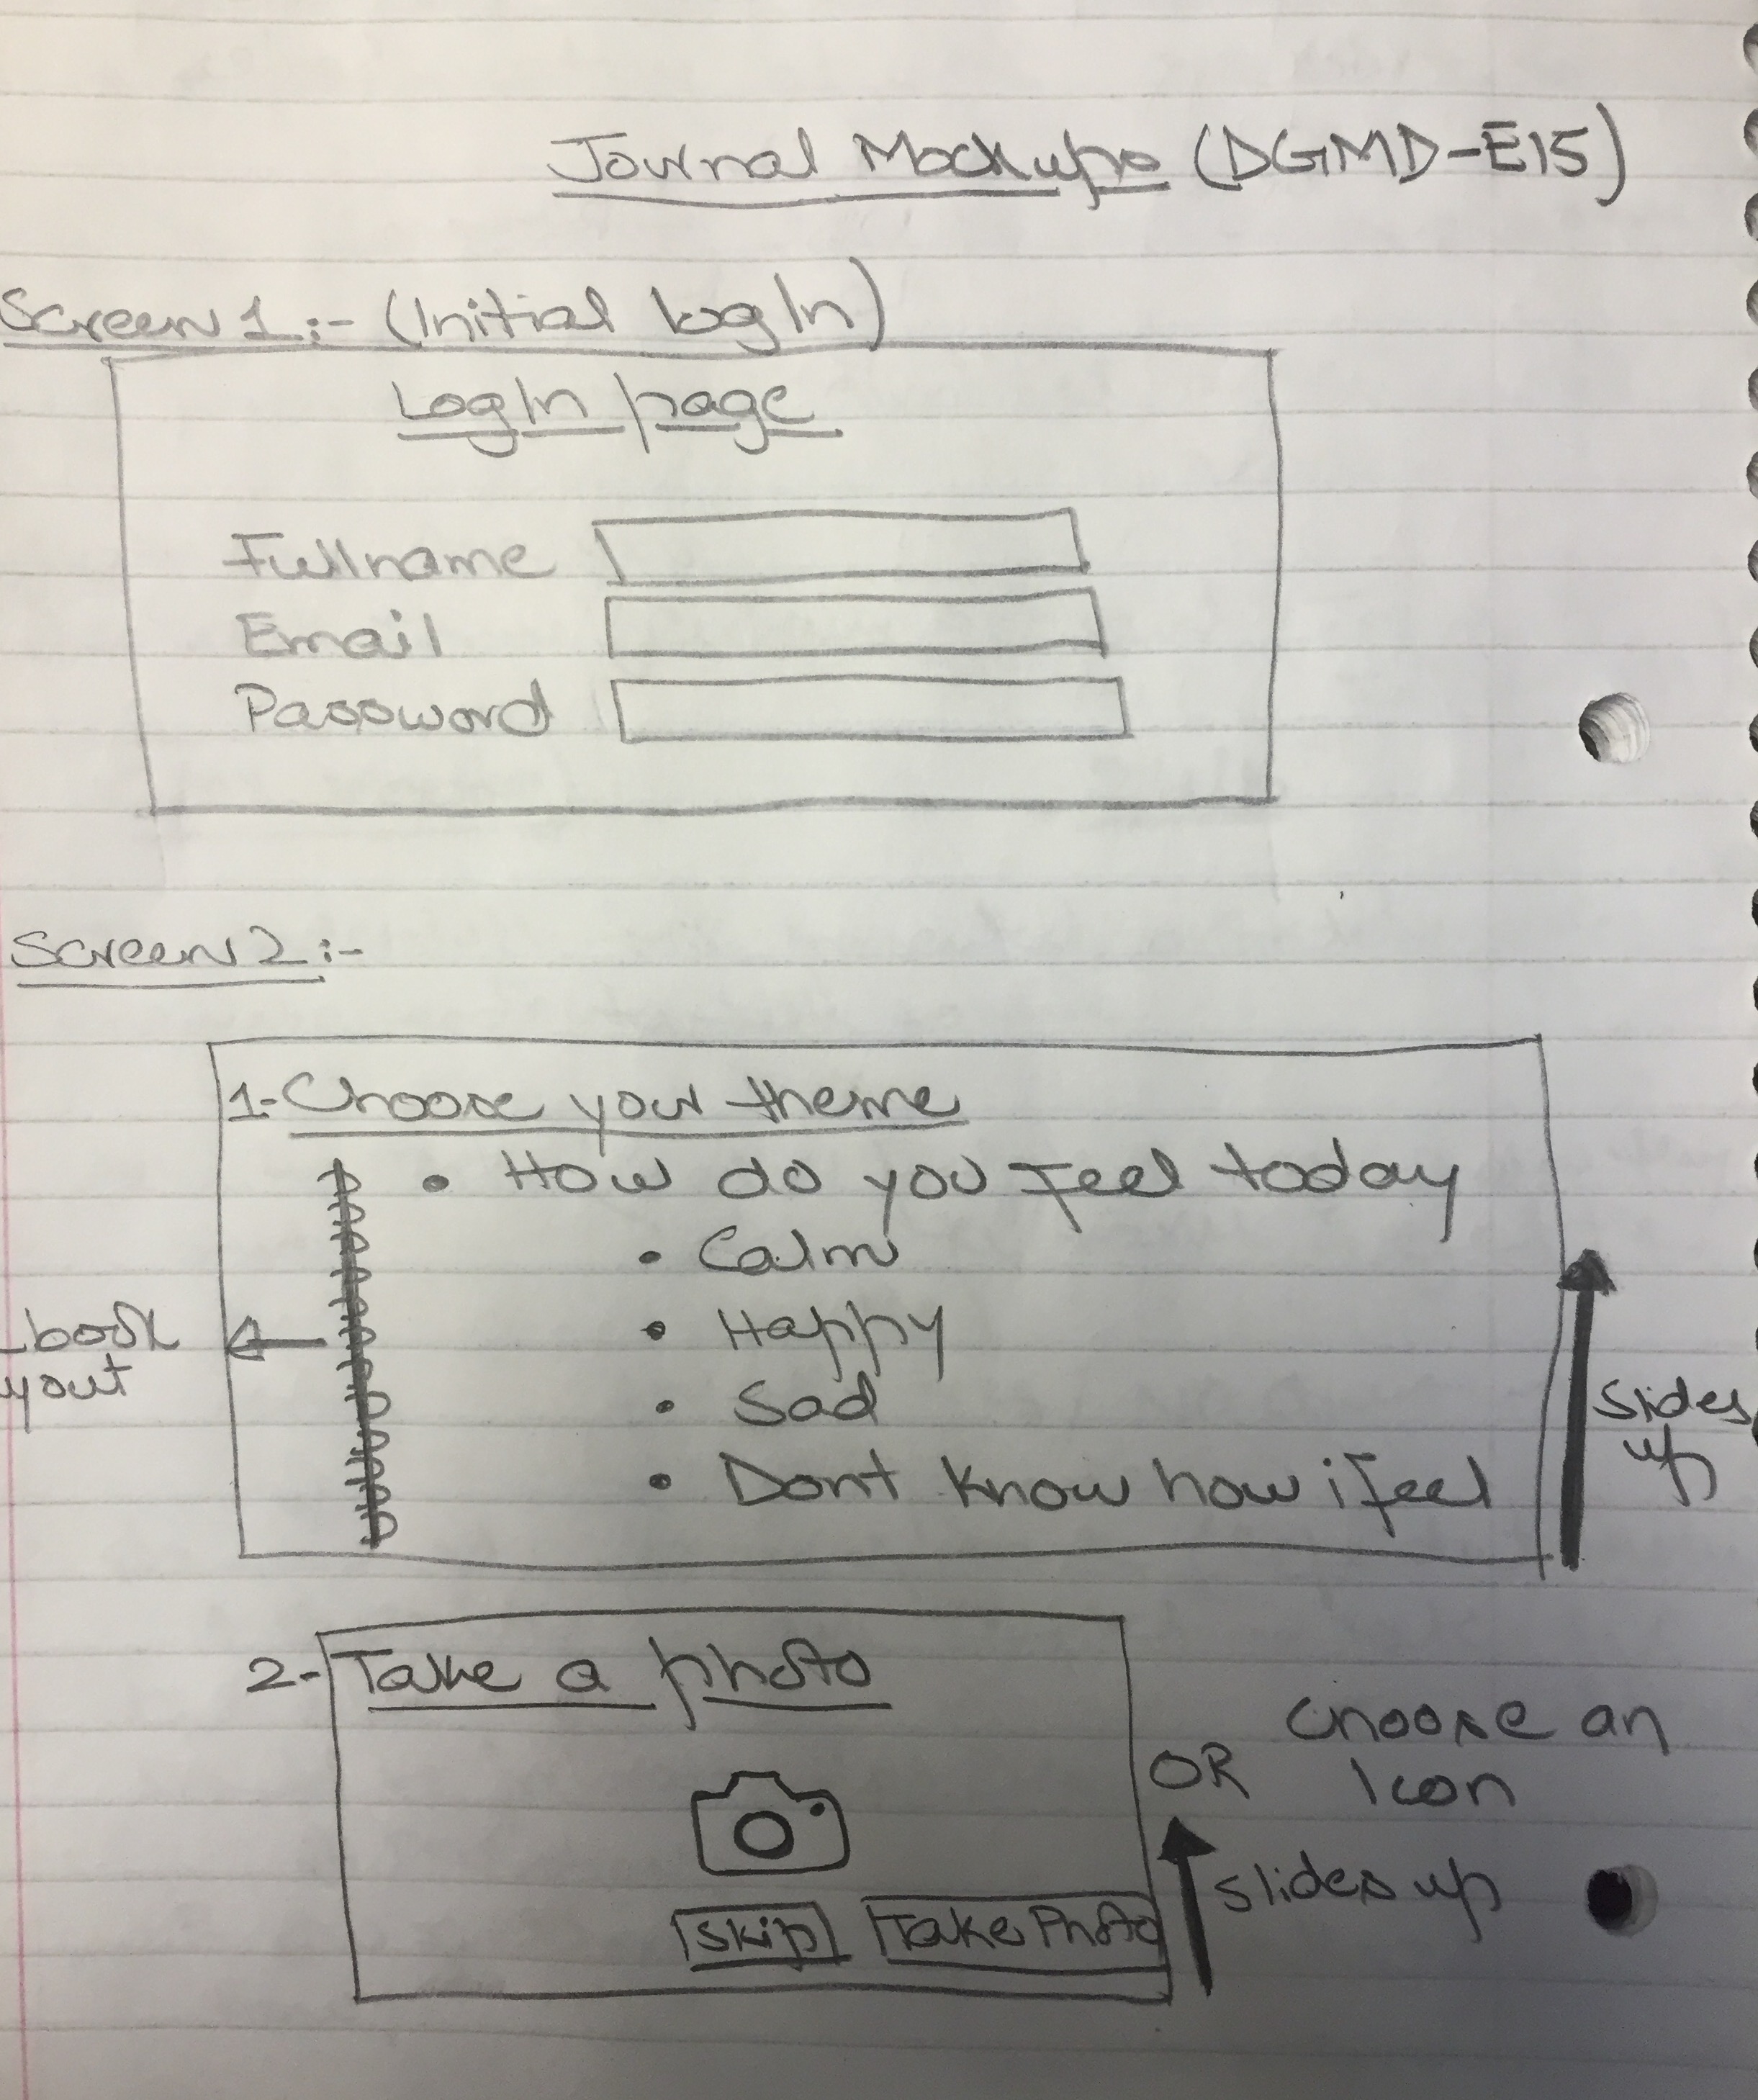 Journal Mockups (DGMD-E15)
Screen 1:- (Initial logIn)
LogIn page
Fullname
Email
Password
Screen 2:-
1- Choose your theme
• How do you Feel today
• Calm
• Happy
• Sad
• Dont know how i feel
book
yout
Slides
up
2- Take a photo
OR choose an
Icon
Skip Take Photo
slides up